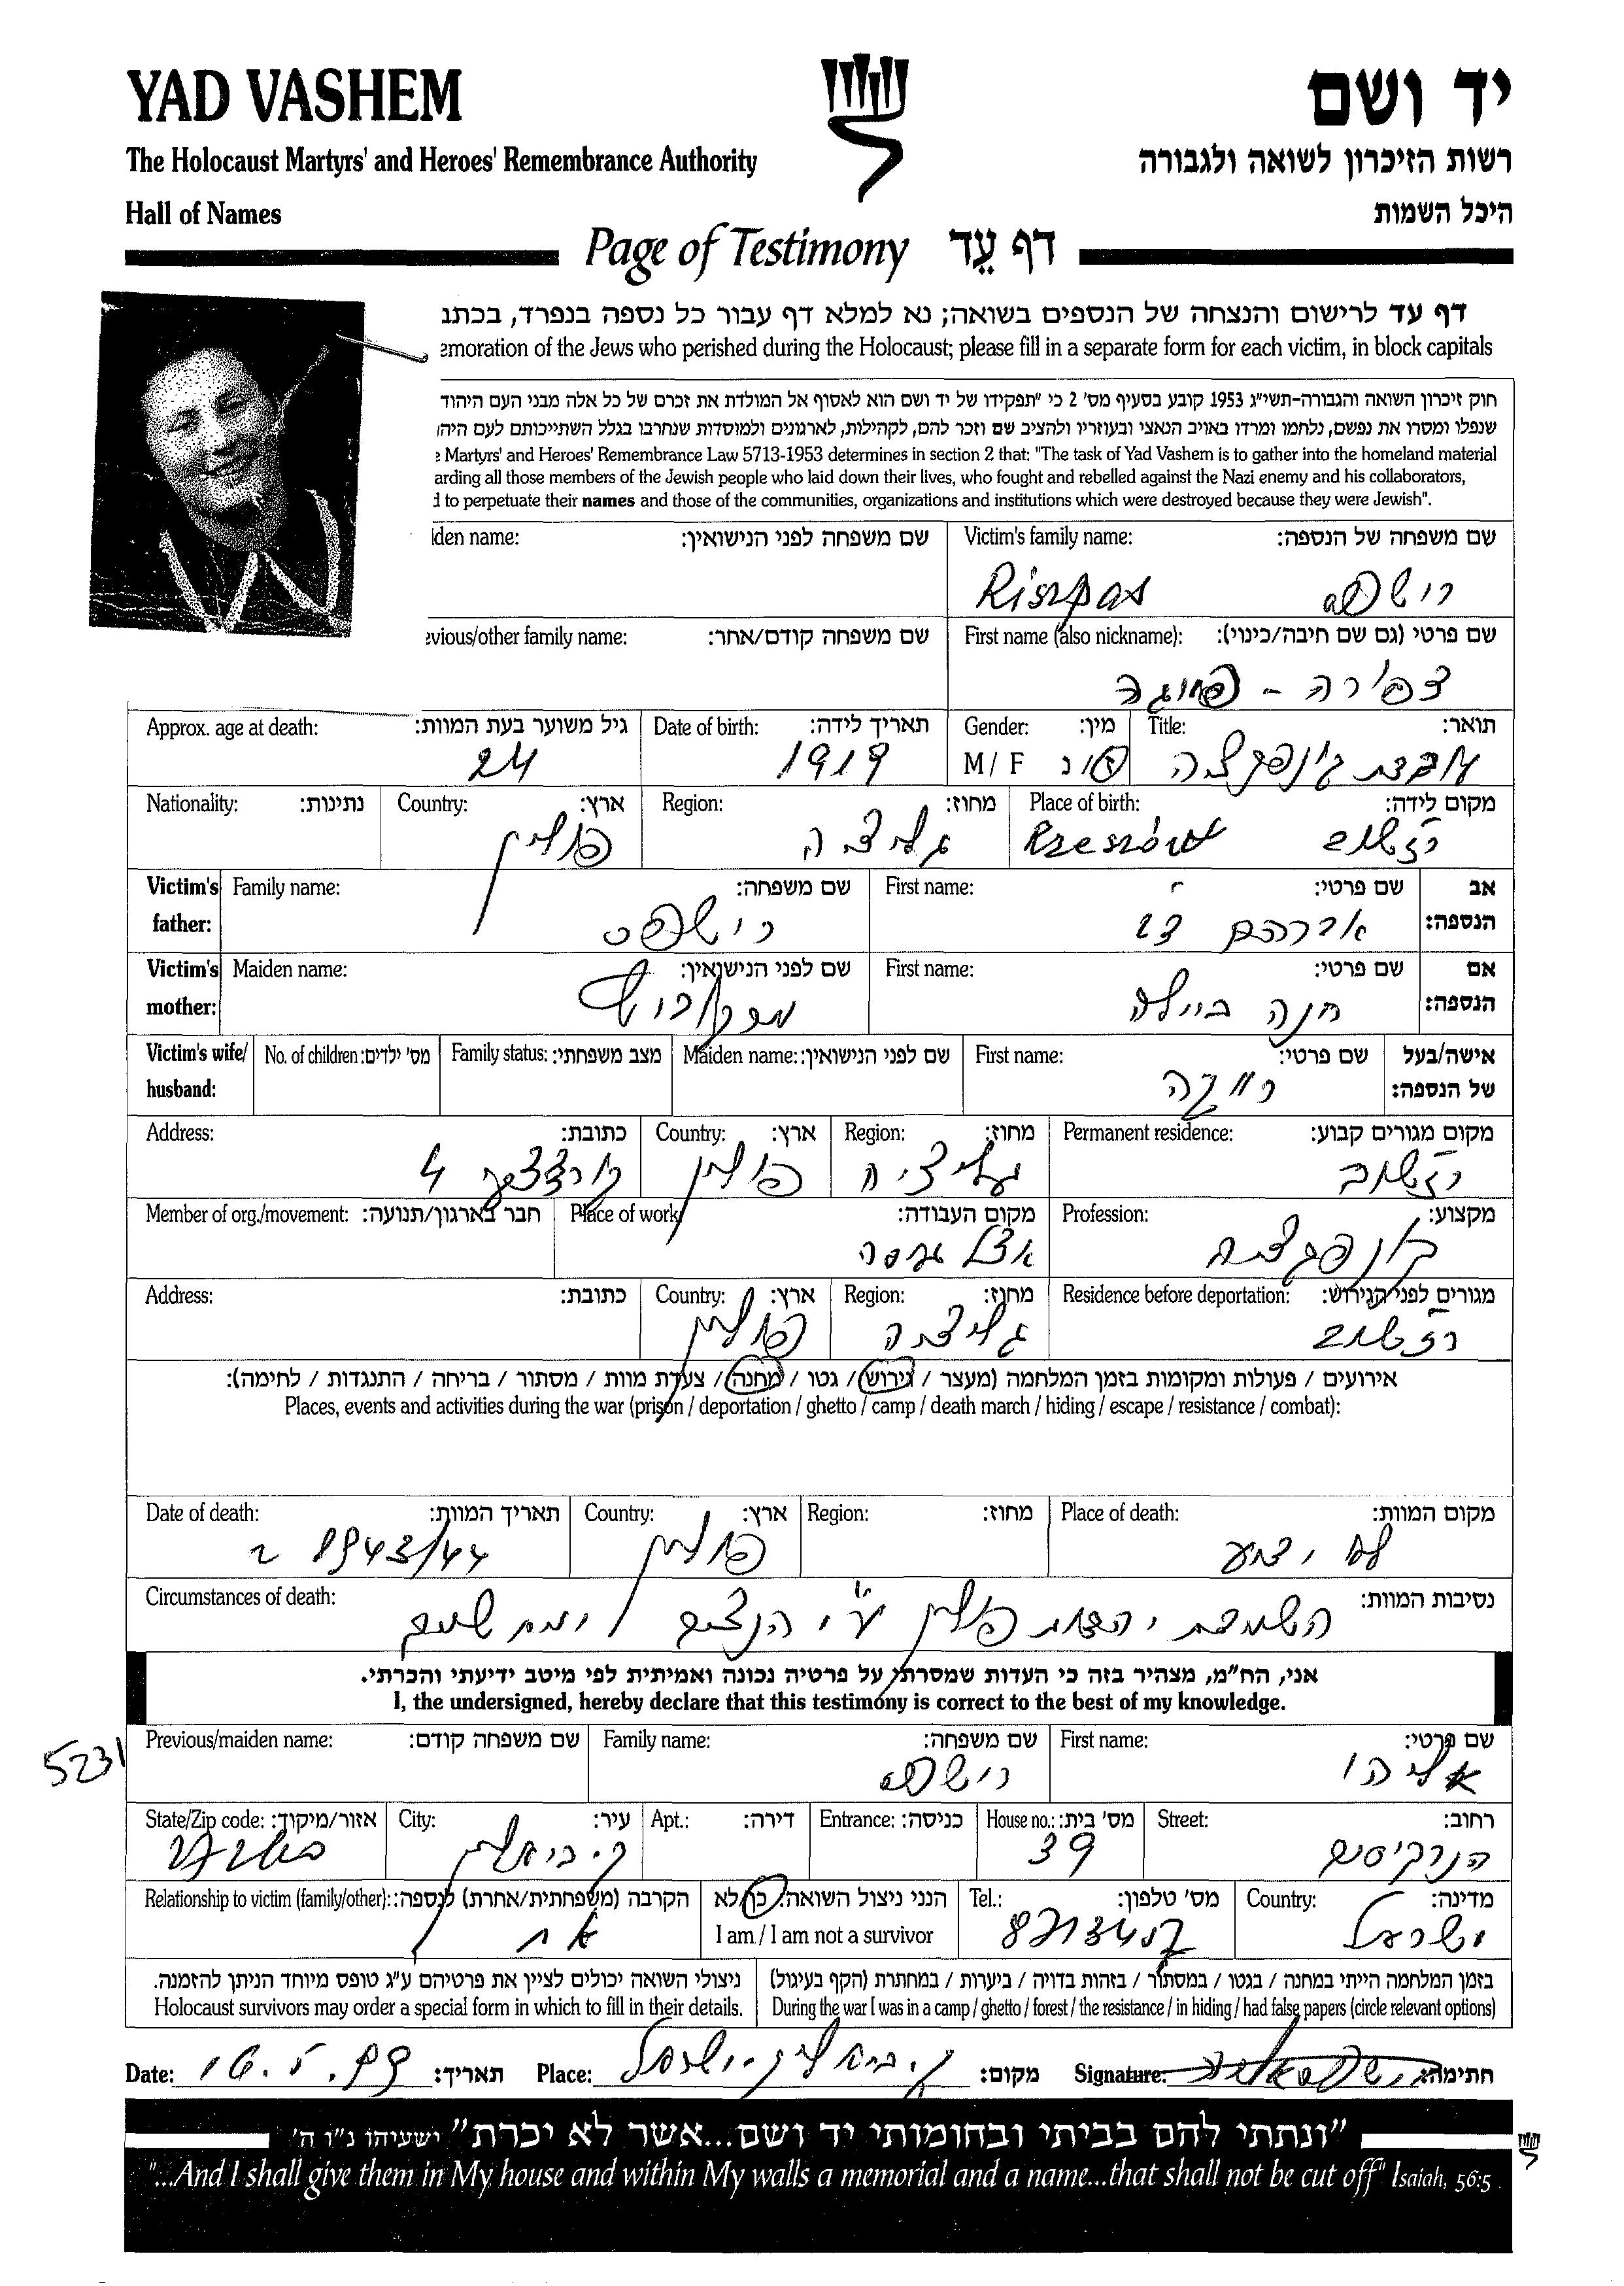 YAD VASHEM
יד ושם
The Holocaust Martyrs' and Heroes' Remembrance Authority
רשות הזיכרון לשואה ולגבורה
Hall of Names
היכל השמות
Page of Testimony דף עֵד
דף עד לרישום והנצחה של הנספים בשואה; נא למלא דף עבור כל נספה בנפרד, בכתב
emoration of the Jews who perished during the Holocaust; please fill in a separate form for each victim, in block capitals
חוק זיכרון השואה והגבורה-תשי"ג 1953 קובע בסעיף מס' 2 כי "תפקידו של יד ושם הוא לאסוף אל המולדת את זכרם של כל אלה מבני העם היהוד
שנפלו ומסרו את נפשם, נלחמו ומרדו באויב הנאצי ובעוזריו ולהציב שם וזכר להם, לקהילות, לארגונים ולמוסדות שנחרבו בגלל השתייכותם לעם היה
Martyrs' and Heroes' Remembrance Law 5713-1953 determines in section 2 that: "The task of Yad Vashem is to gather into the homeland material
arding all those members of the Jewish people who laid down their lives, who fought and rebelled against the Nazi enemy and his collaborators,
d to perpetuate their names and those of the communities, organizations and institutions which were destroyed because they were Jewish".
שם משפחה של הנספה: Victim's family name: שם משפחה לפני הנישואין: iden name:
רישפס
שם פרטי (גם שם חיבה/כינוי): First name (also nickname): שם משפחה קודם/אחר: evious/other family name:
צפורה -
תואר: Title: מין: Gender: תאריך לידה: Date of birth: גיל משוער בעת המוות: Approx. age at death:
M / F ז / נ 1919 24
מקום לידה: Place of birth: מחוז: Region: ארץ: Country: נתינות: Nationality:
רזשוב Rzeszów גליציה פולין
אב הנספה: שם פרטי: First name: שם משפחה: Family name: Victim's father:
אברהם רישפס
אם הנספה: שם פרטי: First name: שם לפני הנישואין: Maiden name: Victim's mother:
חנה ביילה
אישה/בעל של הנספה: שם פרטי: First name: שם לפני הנישואין: Maiden name: מצב משפחתי: Family status: מס' ילדים: No. of children: Victim's wife/ husband:
רווקה
מקום מגורים קבוע: Permanent residence: מחוז: Region: ארץ: Country: כתובת: Address:
רזשוב גליציה פולין 4
מקצוע: Profession: מקום העבודה: Place of work: חבר בארגון/תנועה: Member of org./movement:
קונפקציה אצל
מגורים לפני הגירוש: Residence before deportation: מחוז: Region: ארץ: Country: כתובת: Address:
רזשוב גליציה פולין
אירועים / פעולות ומקומות בזמן המלחמה (מעצר / גירוש / גטו / מחנה / צעדת מוות / מסתור / בריחה / התנגדות / לחימה):
Places, events and activities during the war (prison / deportation / ghetto / camp / death march / hiding / escape / resistance / combat):
מקום המוות: Place of death: מחוז: Region: ארץ: Country: תאריך המוות: Date of death:
לא ידוע פולין 1943/44
נסיבות המוות: Circumstances of death:
השמדת יהדות פולין ע"י הנצים
אני, הח"מ, מצהיר בזה כי העדות שמסרתי על פרטיה נכונה ואמיתית לפי מיטב ידיעתי והכרתי.
I, the undersigned, hereby declare that this testimony is correct to the best of my knowledge.
5231
שם פרטי: First name: שם משפחה: Family name: שם משפחה קודם: Previous/maiden name:
אליהו רישפס
רחוב: Street: מס' בית: House no.: כניסה: Entrance: דירה: Apt.: עיר: City: אזור/מיקוד: State/Zip code:
הנרקיסים 39 ק. ביאליק
מדינה: Country: מס' טלפון: Tel.: הנני ניצול השואה: כן/לא הקרבה (משפחתית/אחרת) לנספה: Relationship to victim (family/other):
I am / I am not a survivor
ישראל אח
בזמן המלחמה הייתי במחנה / בגטו / במסתור / בזהות בדויה / ביערות / במחתרת (הקף בעיגול)
During the war I was in a camp / ghetto / forest / the resistance / in hiding / had false papers (circle relevant options)
ניצולי השואה יכולים לציין את פרטיהם ע"ג טופס מיוחד הניתן להזמנה.
Holocaust survivors may order a special form in which to fill in their details.
Date: 16.5.99 תאריך: Place: ק. ביאליק ישראל מקום: Signature: חתימה:
"ונתתי להם בביתי ובחומותי יד ושם...אשר לא יכרת" ישעיהו נ"ו ה'
"...And I shall give them in My house and within My walls a memorial and a name...that shall not be cut off" Isaiah, 56:5